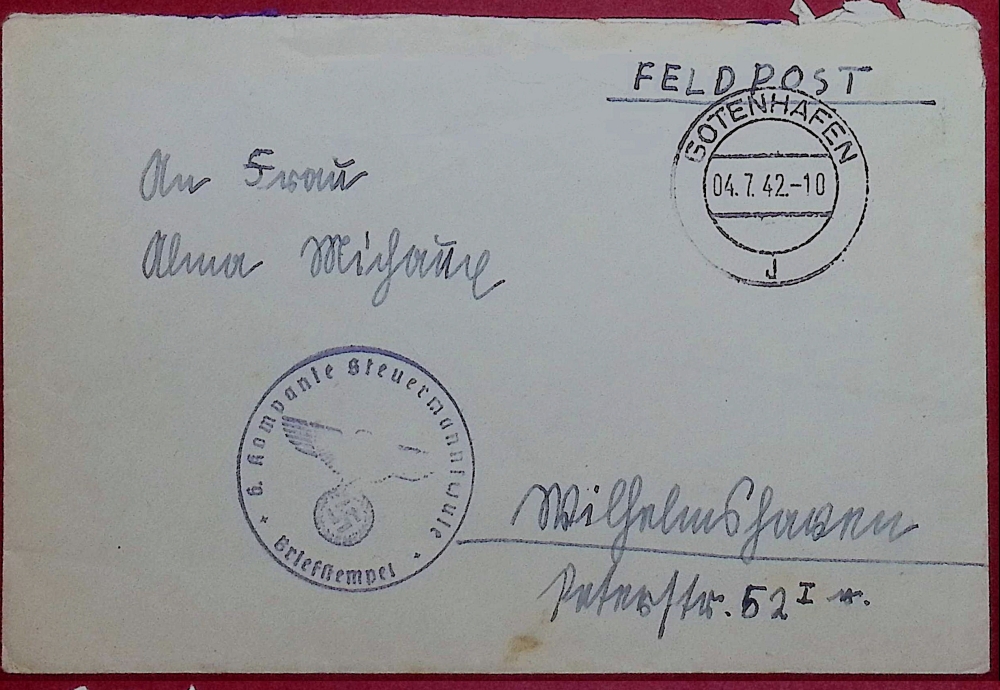 FELDPOST
GOTENHAFEN
04.7.42.-10
J
An Frau
Alma
6. Kompanie Steuermannschule
Briefstempel
Wilhelmshaven
Peterstr. 52 I r.